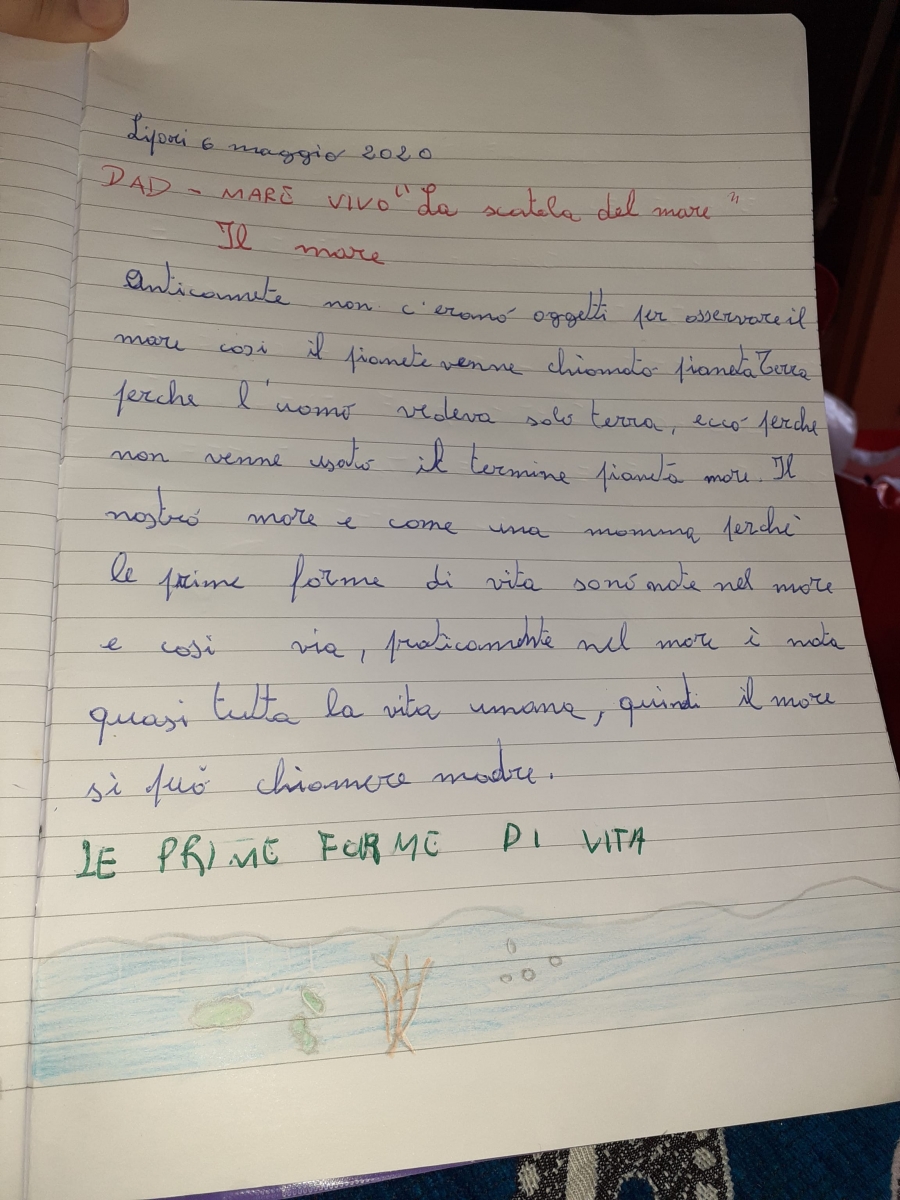 Lipari 6 maggio 2020
DAD - MARE VIVO "La scatola del mare"
Il mare
Anticamete non c'erano oggetti per osservare il
mare così il pianete venne chiamato pianeta Terra
perche l'uomo vedeva solo terra, ecco perche
non venne usato il termine pianeta mare. Il
nostro mare e come una mamma perchè
le prime forme di vita sono nate nel mare
e così via, praticamente nel mare è nata
quasi tutta la vita umana, quindi il mare
si può chiamare madre.
LE PRIME FORME DI VITA